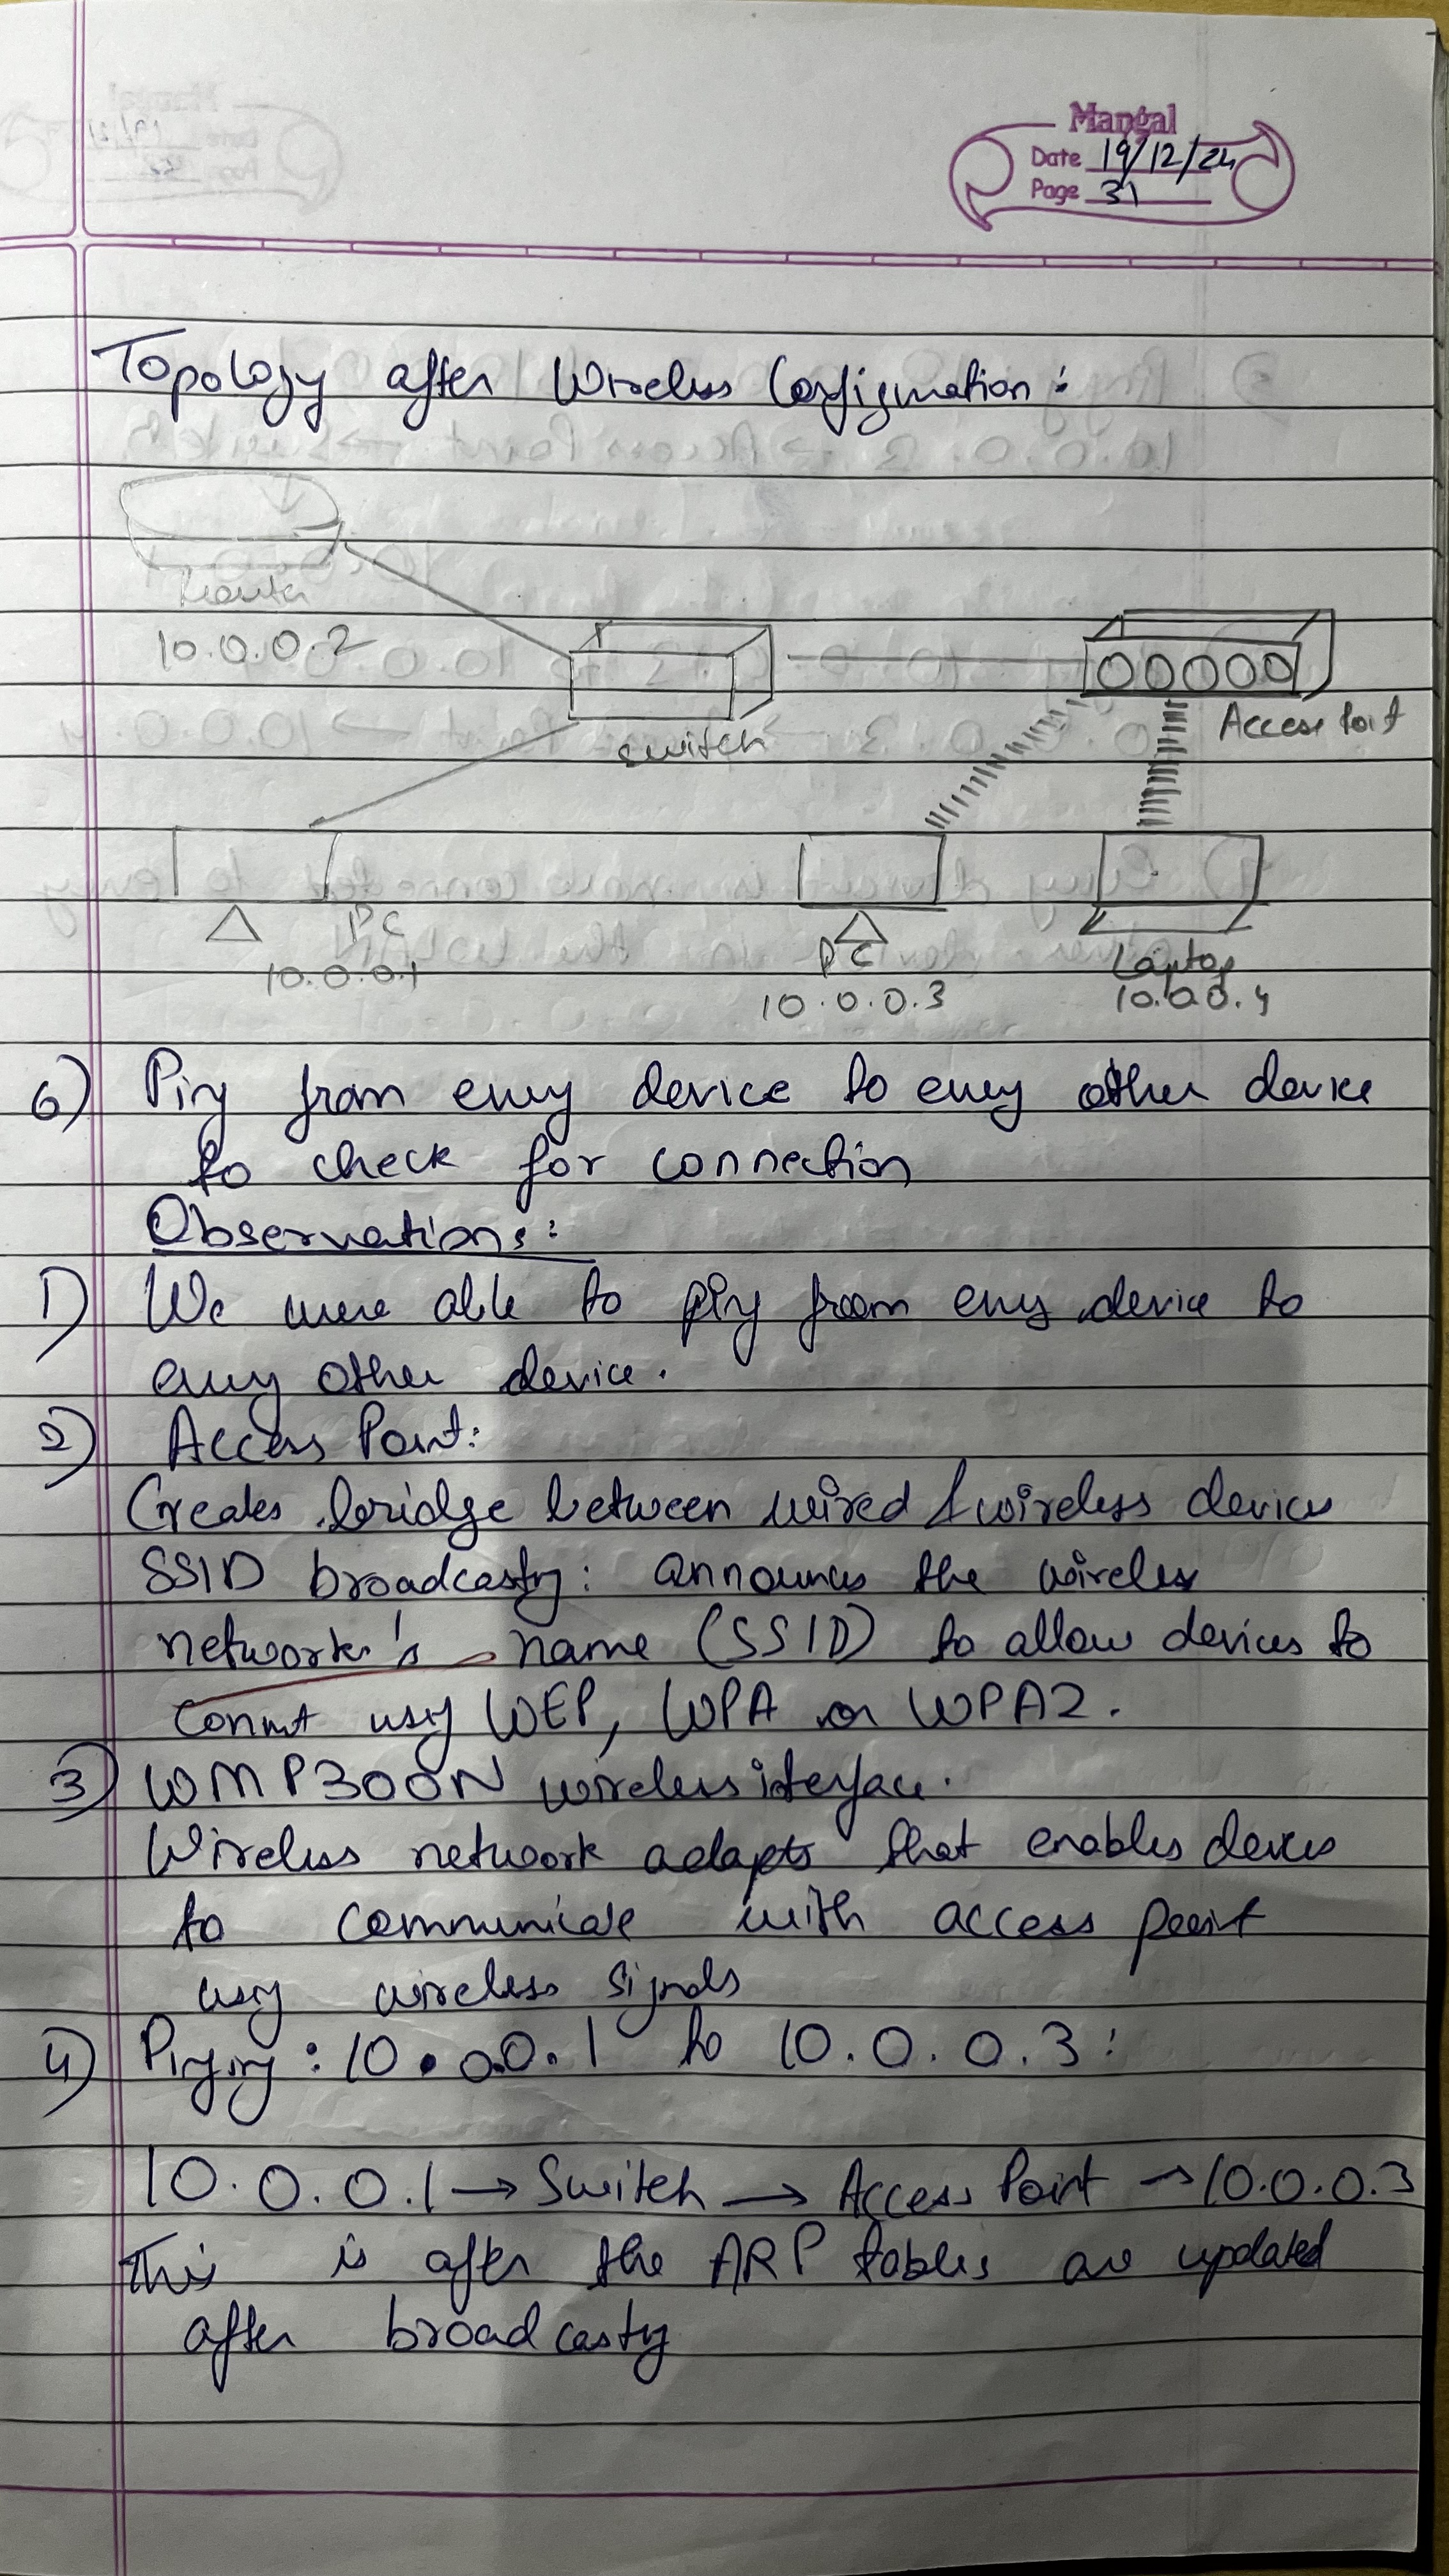 Mangal
Date 19/12/24
Page 31
Topology after Wireless Configuration:
Router
10.0.0.2
switch
Access Point
PC
10.0.0.1
PC
10.0.0.3
Laptop
10.0.0.4
6) Ping from every device to every other device
to check for connection
Observations:
1) We were able to ping from every device to
every other device.
2) Access Point:
Creates bridge between wired & wireless devices
SSID broadcasting: announces the wireless
network's name (SSID) to allow devices to
connect using WEP, WPA or WPA2.
3) WMP300N wireless interface.
Wireless network adapts that enables devices
to communicate with access point
using wireless signals
4) Pinging: 10.0.0.1 to 10.0.0.3:
10.0.0.1 → Switch → Access Point → 10.0.0.3
This is after the ARP tables are updated
after broadcasting